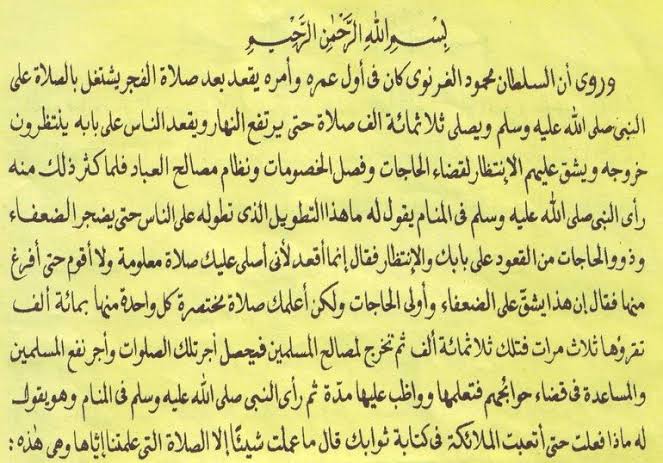 بِسْمِ اللهِ الرَّحْمٰنِ الرَّحِيْمِ
وروى أن السلطان محمود الغرنوى كان فى أول عمره وأمره يقعد بعد صلاة الفجر يشتغل بالصلاة على
النبى صلى الله عليه وسلم ويصلى ثلاثمائة الف صلاة حتى يرتفع النهار ويقعد الناس على بابه ينتظرون
خروجه ويشق عليهم الإنتظار لقضاء الحاجات وفصل الخصومات ونظام مصالح العباد فلما كثر ذلك منه
رأى النبى صلى الله عليه وسلم فى المنام يقول له ما هذا التطويل الذى تطوله على الناس حتى يضجر الضعفاء
وذوو الحاجات من القعود على بابك والإنتظار فقال إنما أقعد لأنى أصلى عليك صلاة معلومة ولا أقوم حتى أفرغ
منها فقال إن هذا يشقّ على الضعفاء وأولى الحاجات ولكن أعلمك صلاة مختصرة كل واحدة منها بمائة ألف
تقرؤها ثلاث مرات فتلك ثلاثمائة ألف ثم تخرج لمصالح المسلمين فيحصل أجر تلك الصلوات وأجر نفع المسلمين
والمساعدة فى قضاء حوائجهم فتعلمها وواظب عليها مدّة ثم رأى النبى صلى الله عليه وسلم فى المنام وهو يقول
له ماذا فعلت حتى أتعبت الملائكة فى كتابة ثوابك قال ما عملت شيئًا إلا الصلاة التى علمتنا إيّاها وهى هٰذه :